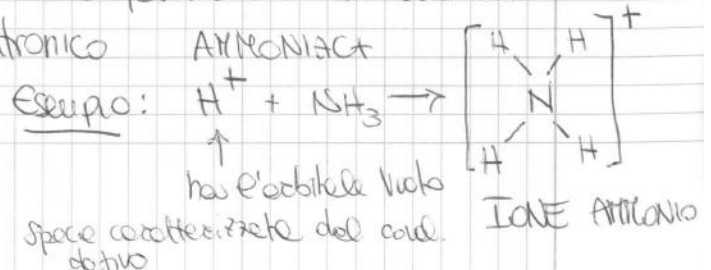 tronico AMMONIACA
Esempio: H⁺ + NH₃ → [H H N H H]⁺
ha l'orbitale vuoto
IONE AMMONIO
specie caratterizzata dal coval.
dativo